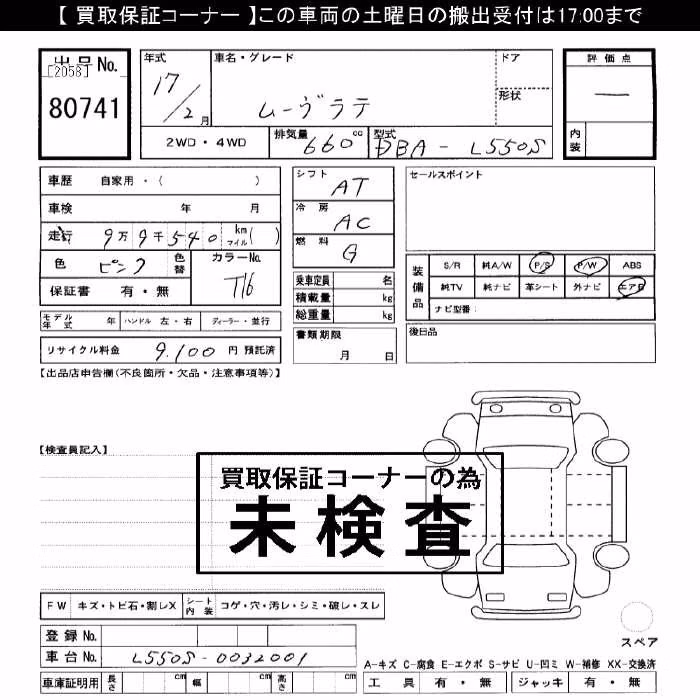 【 買取保証コーナー 】この車両の土曜日の搬出受付は17:00まで
出品No.
[2058]
80741
年式
17/2月
車名・グレード
ムーヴラテ
ドア
形状
評価点
—
内装
2WD・4WD
排気量 660cc
型式 DBA-L550S
車歴 自家用・( )
車検 年 月
走行 9万9千540km マイル( )
色 ピンク
色替
カラーNo.
T16
保証書 有・無
モデル年式 年
ハンドル 左・右
ディーラー・並行
リサイクル料金 9,100円 預託済
シフト AT
冷房 AC
燃料 G
乗車定員 名
積載量 kg
総重量 kg
書類期限
月 日
セールスポイント
装備品
S/R 純A/W P/S P/W ABS
純TV 純ナビ 革シート 外ナビ エアB
ナビ型番:
後日品
【出品店申告欄(不良箇所・欠品・注意事項等)】
【検査員記入】
買取保証コーナーの為
未検査
FW キズ・トビ石・割レX シート内装 コゲ・穴・汚レ・シミ・破レ・スレ
登録No.
車台No. L550S-0032001
車庫証明用 長さ cm 幅 cm 高さ cm
スペア
A-キズ C-腐食 E-エクボ S-サビ U-凹ミ W-補修 XX-交換済
工具 有・無 ジャッキ 有・無